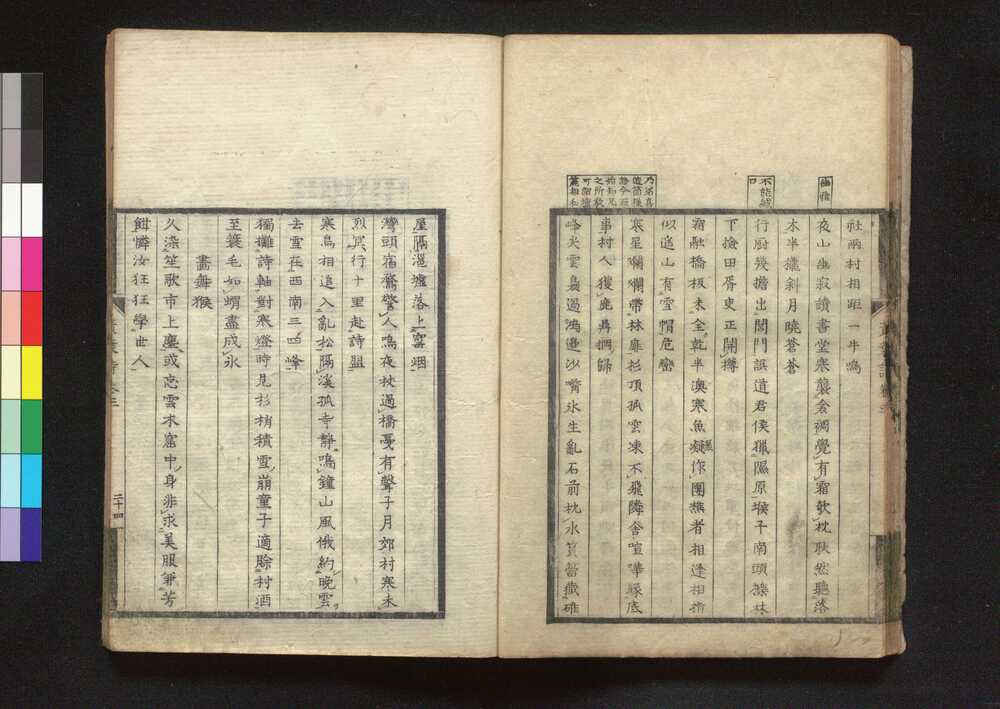 社兩村相距一牛鳴
夜山幽寂讀書堂寒襲衾裯覺有霜欹枕耿然聽落
木半擁斜月曉蒼蒼
行厨幾擔出閭門誤道君侯獵隰原堠午南頭籐林
下撿田胥吏正開樽
霜融橋板未全乾半澳寒魚凝作團樵者相逢相指
似遙山有雪帽危巒
寒星爛爛帶林扉杉頂孤雲凍不飛隣舍喧嘩緣底
事村人獲鹿舁網歸
峰尖雲裊過鴻邊沙觜氷生亂石前枕水 當 碓
幽雅
不能
口
屋隔溫墟落上窰烟
灣頭宿鷺警人鳴夜杖過橋戞有聲子月郊村寒未
烈冥行十里赴詩盟
寒鳥相追入亂松隔溪孤寺靜鳴鐘山風俄約晩雲
去雪在西南三四峰
獨攤詩軸對寒燈時見杉梢積雪崩童子適賒村酒
至蓑毛如蝟盡成氷
畫舞猴
久染笙歌市上塵或忘雲木窟中身非求美服兼芳
餌憐汝狂狂學世人
三十四